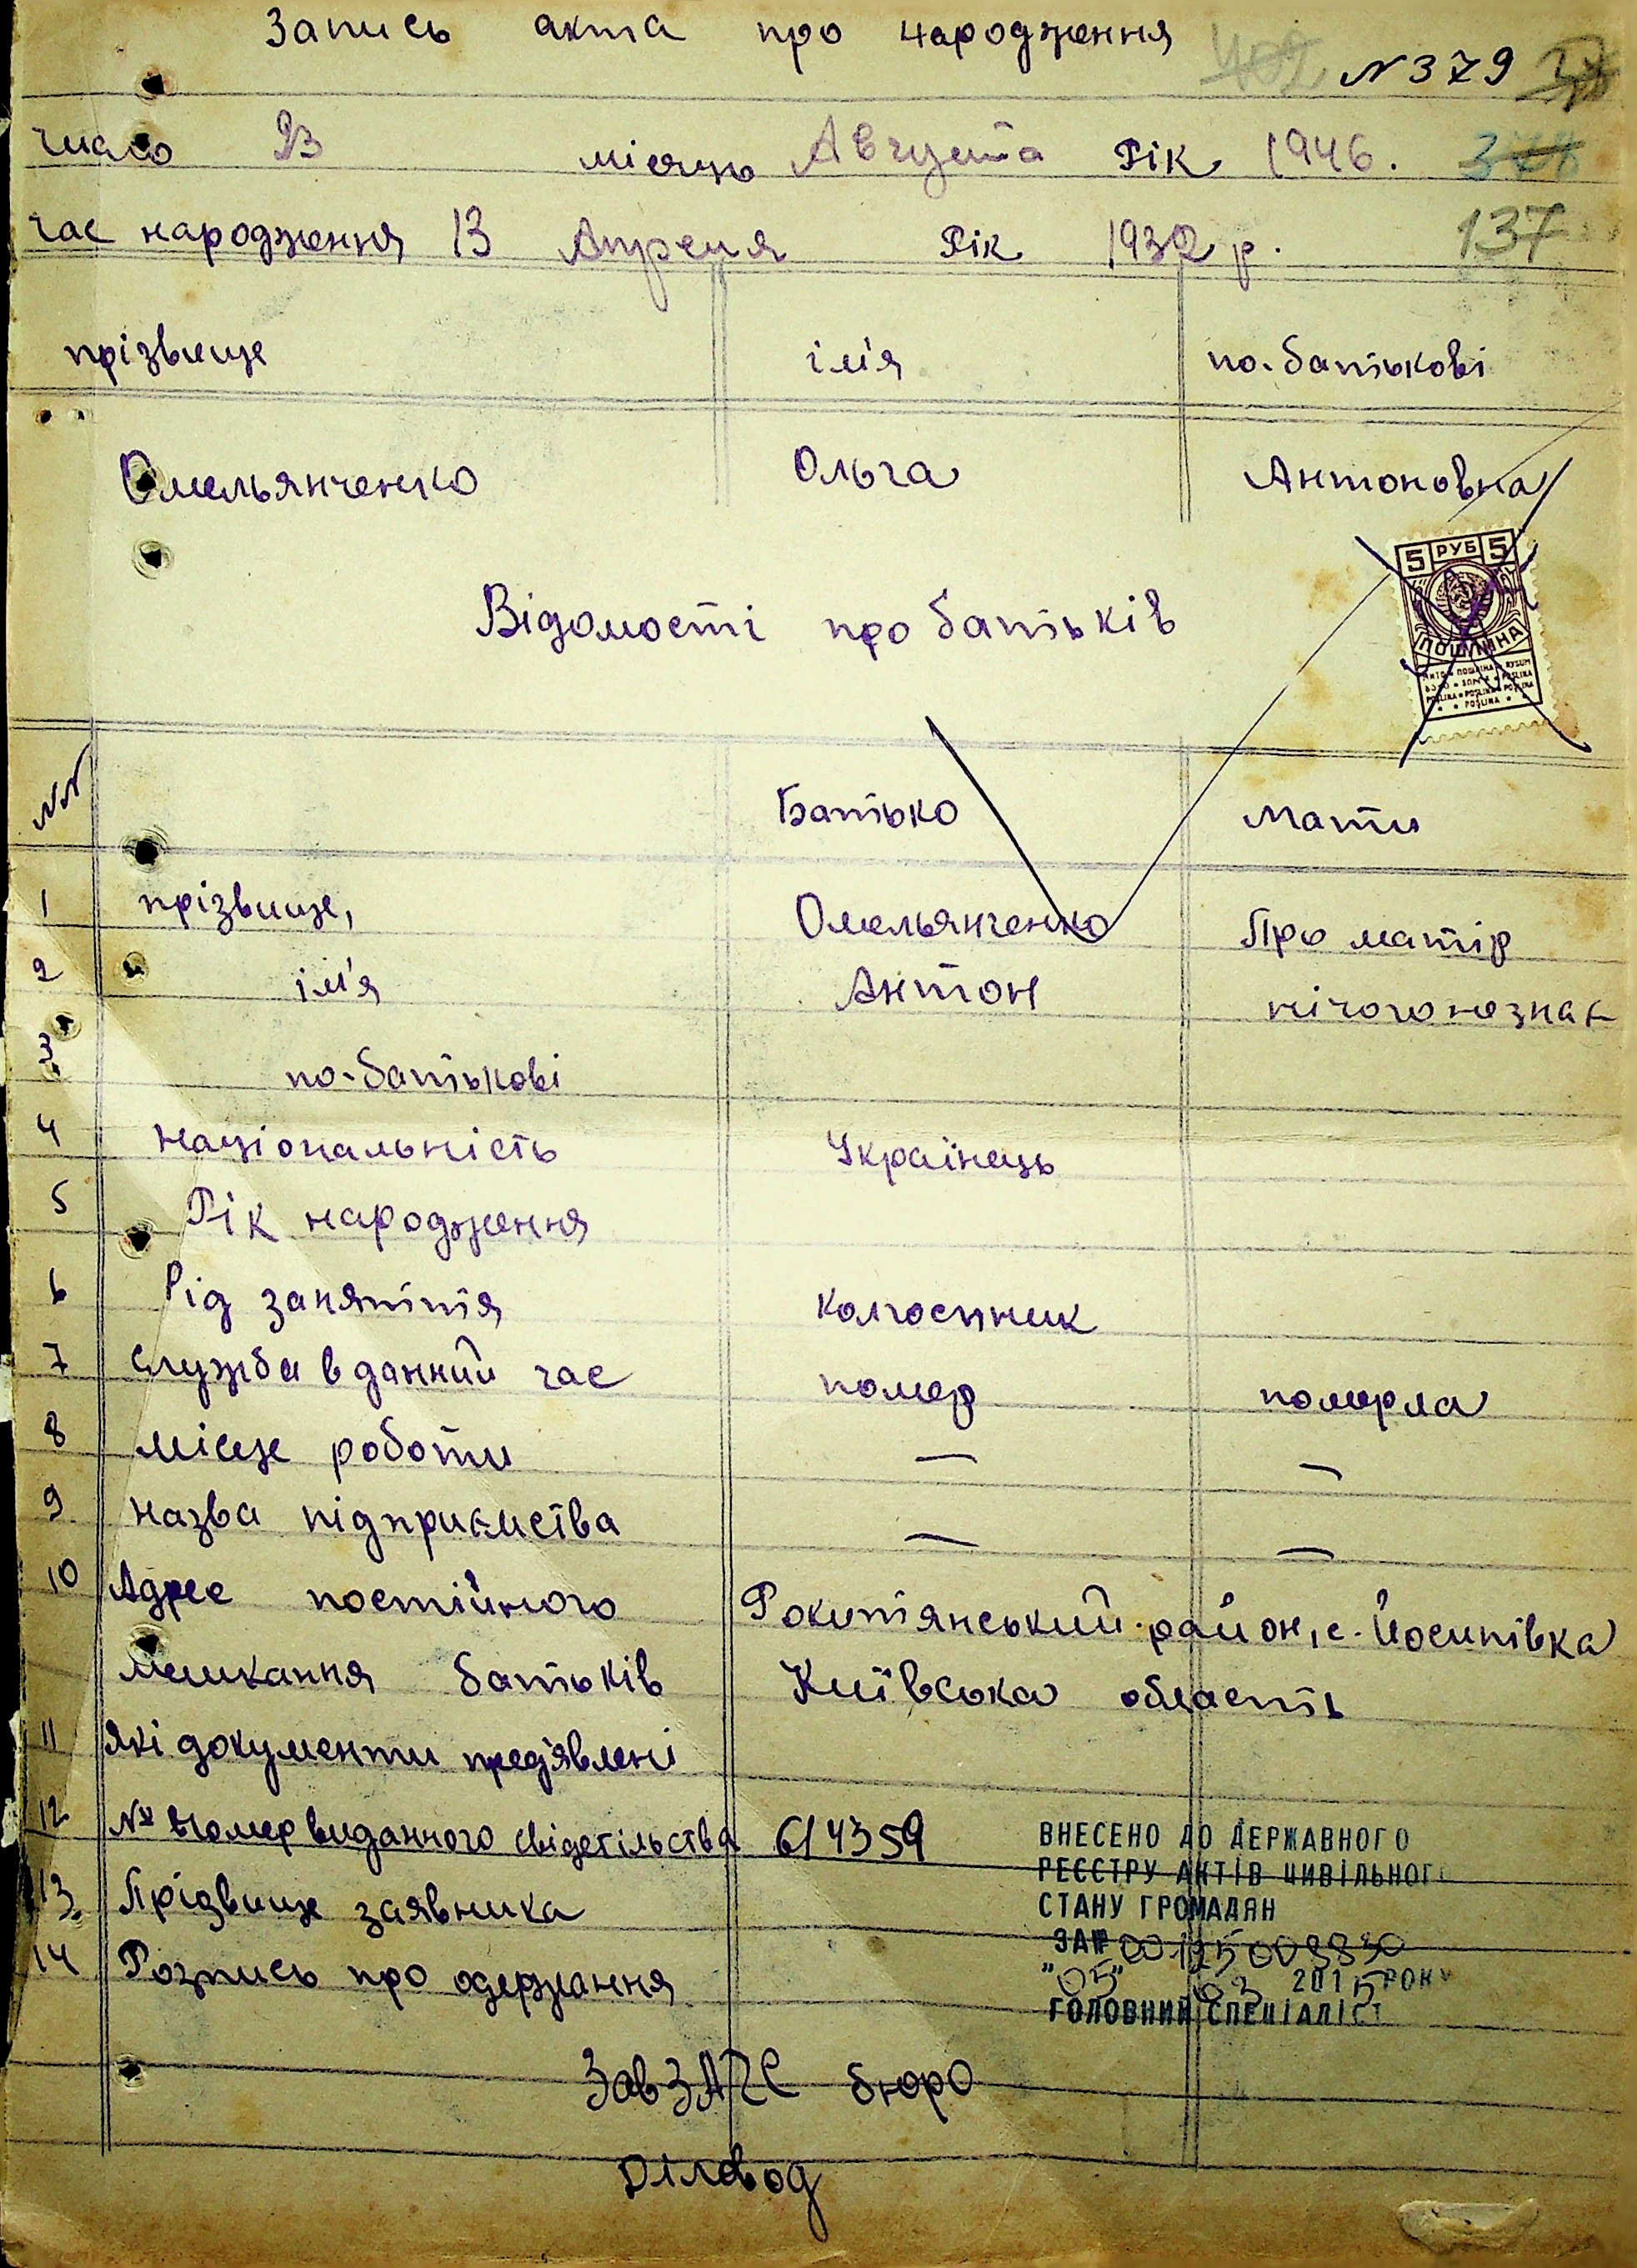 Запись акта про народження
N 379
число 23 місяць Августа Рік 1946.
час народження 13 Апреля Рік 1932 р. 137
прізвище ім'я по-батькові
Омельянченко Ольга Антоновна
5 РУБ 5
ПОШЛИНА
Відомості про батьків
NN Батько Мати
1 прізвище, Омельянченко Про матір
2 ім'я Антон нічого незнає
3 по-батькові
4 Національність Українець
5 Рік народження
6 Рід заняття колгоспник
7 Служба в данний час помер померла
8 місце роботи — —
9 назва підприємства — —
10 Адрес постійного Рокитянський район, с. Йосипівка
мешкання батьків Київська область
11 Які документи предявлені
12 № номер виданного свідетільства 614359
13 Прізвище заявника
14 Розпись про одержання
ВНЕСЕНО ДО ДЕРЖАВНОГО
РЕЄСТРУ АКТІВ ЦИВІЛЬНОГО
СТАНУ ГРОМАДЯН
ЗА №
"05" 03 2015 РОКУ
ГОЛОВНИЙ СПЕЦІАЛІСТ
Зав ЗАГС бюро
Діловод